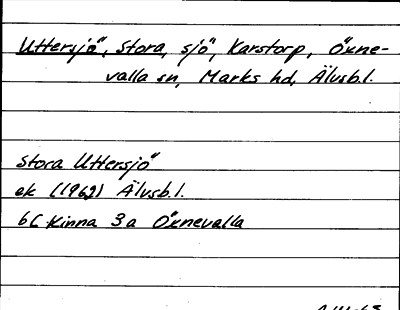 Uttersjö, Stora, sjö, Karstorp, Öxne-
valla sn, Marks hd, Älvsb.l.
Stora Uttersjö
ek (1962) Älvsb.l.
6C Kinna 3a Öxnevalla